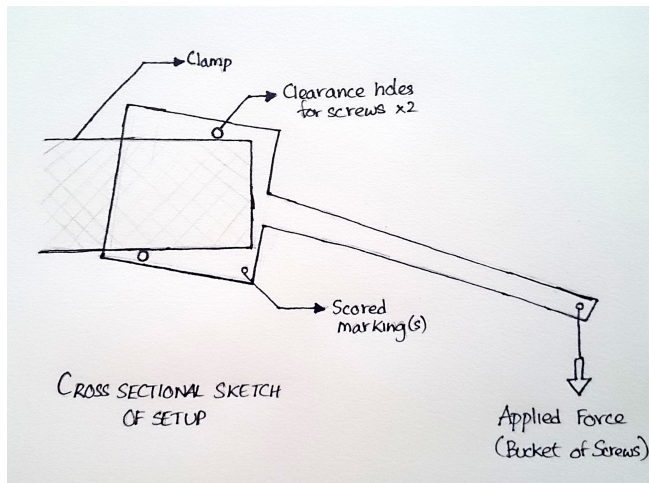 Clamp
Clearance holes
for screws x2
Scored
marking(s)
CROSS SECTIONAL SKETCH
OF SETUP
Applied Force
(Bucket of Screws)